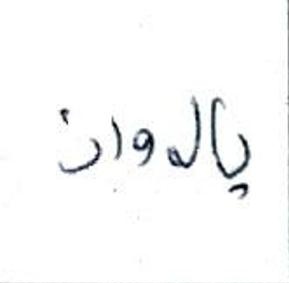 پالوان